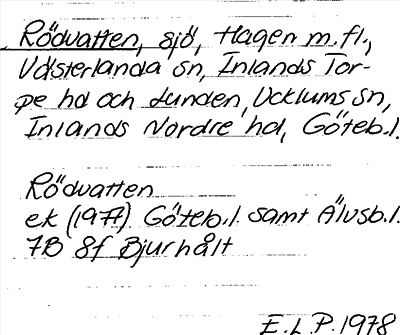 Rödvatten, sjö, Hagen m.fl.,
Västerlanda sn, Inlands Tor-
pe hd och Lunden, Ucklums sn,
Inlands Nordre hd, Göteb.l.
Rödvatten
ek (1977) Göteb.l. samt Älvsb.l.
7B 8f Bjurhålt
E.L.P. 1978